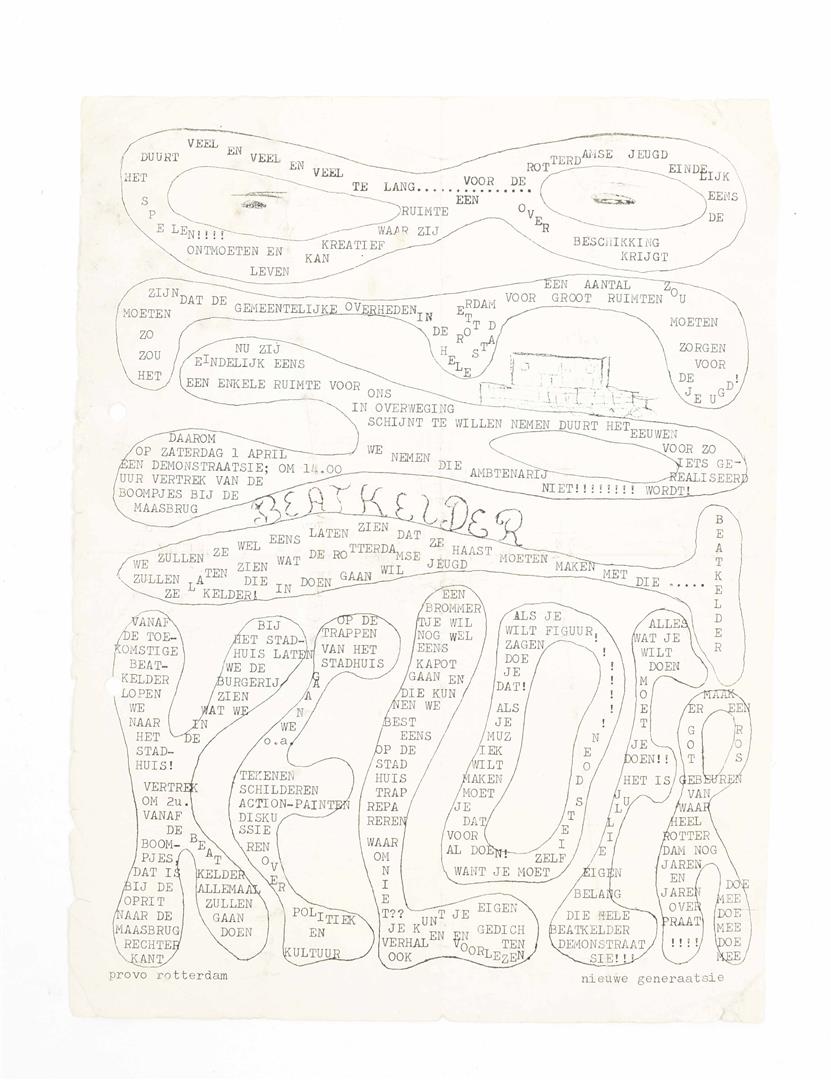 HET DUURT VEEL EN VEEL EN VEEL TE LANG.............. VOOR DE ROTTERDAMSE JEUGD EINDELIJK EENS DE
BESCHIKKING
KRIJGT
OVER
EEN
RUIMTE
WAAR ZIJ
KREATIEF
KAN
ONTMOETEN EN
LEVEN
SPELEN!!!!
HET
ZOU
ZO
MOETEN
ZIJN DAT DE GEMEENTELIJKE OVERHEDEN IN
DE HELE STAD ROTTERDAM
VOOR GROOT
EEN AANTAL
RUIMTEN ZOU
MOETEN
ZORGEN
VOOR
DE
JEUGD!
NU ZIJ
EINDELIJK EENS
EEN ENKELE RUIMTE VOOR ONS
IN OVERWEGING
SCHIJNT TE WILLEN NEMEN DUURT HET EEUWEN
VOOR ZO
IETS GE-
REALISEERD
WORDT!
NIET!!!!!!!!
WE NEMEN DIE AMBTENARIJ
DAAROM
OP ZATERDAG 1 APRIL
EEN DEMONSTRAATSIE; OM 14.00
UUR VERTREK VAN DE
BOOMPJES BIJ DE
MAASBRUG
BEATKELDER
WE ZULLEN ZE WEL EENS LATEN ZIEN DAT ZE HAAST MOETEN MAKEN MET DIE .....
BEATKELDER
ZULLEN LATEN ZIEN WAT DE ROTTERDAMSE JEUGD
ZE DIE IN DOEN GAAN WIL
KELDER!
VANAF
DE TOE-
KOMSTIGE
BEAT-
KELDER
LOPEN
WE
NAAR
HET
STAD-
HUIS!
VERTREK
OM 2u.
VANAF
DE
BOOM-
PJES,
DAT IS
BIJ DE
OPRIT
NAAR DE
MAASBRUG
RECHTER
KANT
BIJ
HET STAD-
HUIS LATEN
WE DE
BURGERIJ
ZIEN
WAT WE
IN
DE
BEAT
KELDER
ALLEMAAL
ZULLEN
GAAN
DOEN
OP DE
TRAPPEN
VAN HET
STADHUIS
GAAN
WE
o.a.
TEKENEN
SCHILDEREN
ACTION-PAINTEN
DISKU
SSIE
REN
OVER
POLITIEK
EN
KULTUUR
EEN
BROMMER
TJE WIL
NOG WEL
EENS
KAPOT
GAAN EN
DIE KUN
NEN WE
BEST
EENS
OP DE
STAD
HUIS
TRAP
REPA
REREN
WAAR
OM
NIET??
JE KUNT JE EIGEN
VERHALEN EN GEDICH
TEN
OOK VOORLEZEN.
ALS JE
WILT FIGUUR
ZAGEN
DOE
JE
DAT!
ALS
JE
MUZ
IEK
WILT
MAKEN
MOET
JE
DAT
VOOR
AL DOEN!
WANT JE MOET
ZELF
IETS DOEN!!!!!!
ALLES
WAT JE
WILT
DOEN
MOET
JE
DOEN!!
HET IS
JULLIE
EIGEN
BELANG
DIE HELE
BEATKELDER
DEMONSTRAAT
SIE!!!
MAAK
ER EEN
GROOTS
GEBEUREN
VAN
WAAR
HEEL
ROTTER
DAM NOG
JAREN
EN
JAREN
OVER
PRAAT
!!!!
DOE
MEE
DOE
MEE
DOE
MEE
provo rotterdam
nieuwe generaatsie